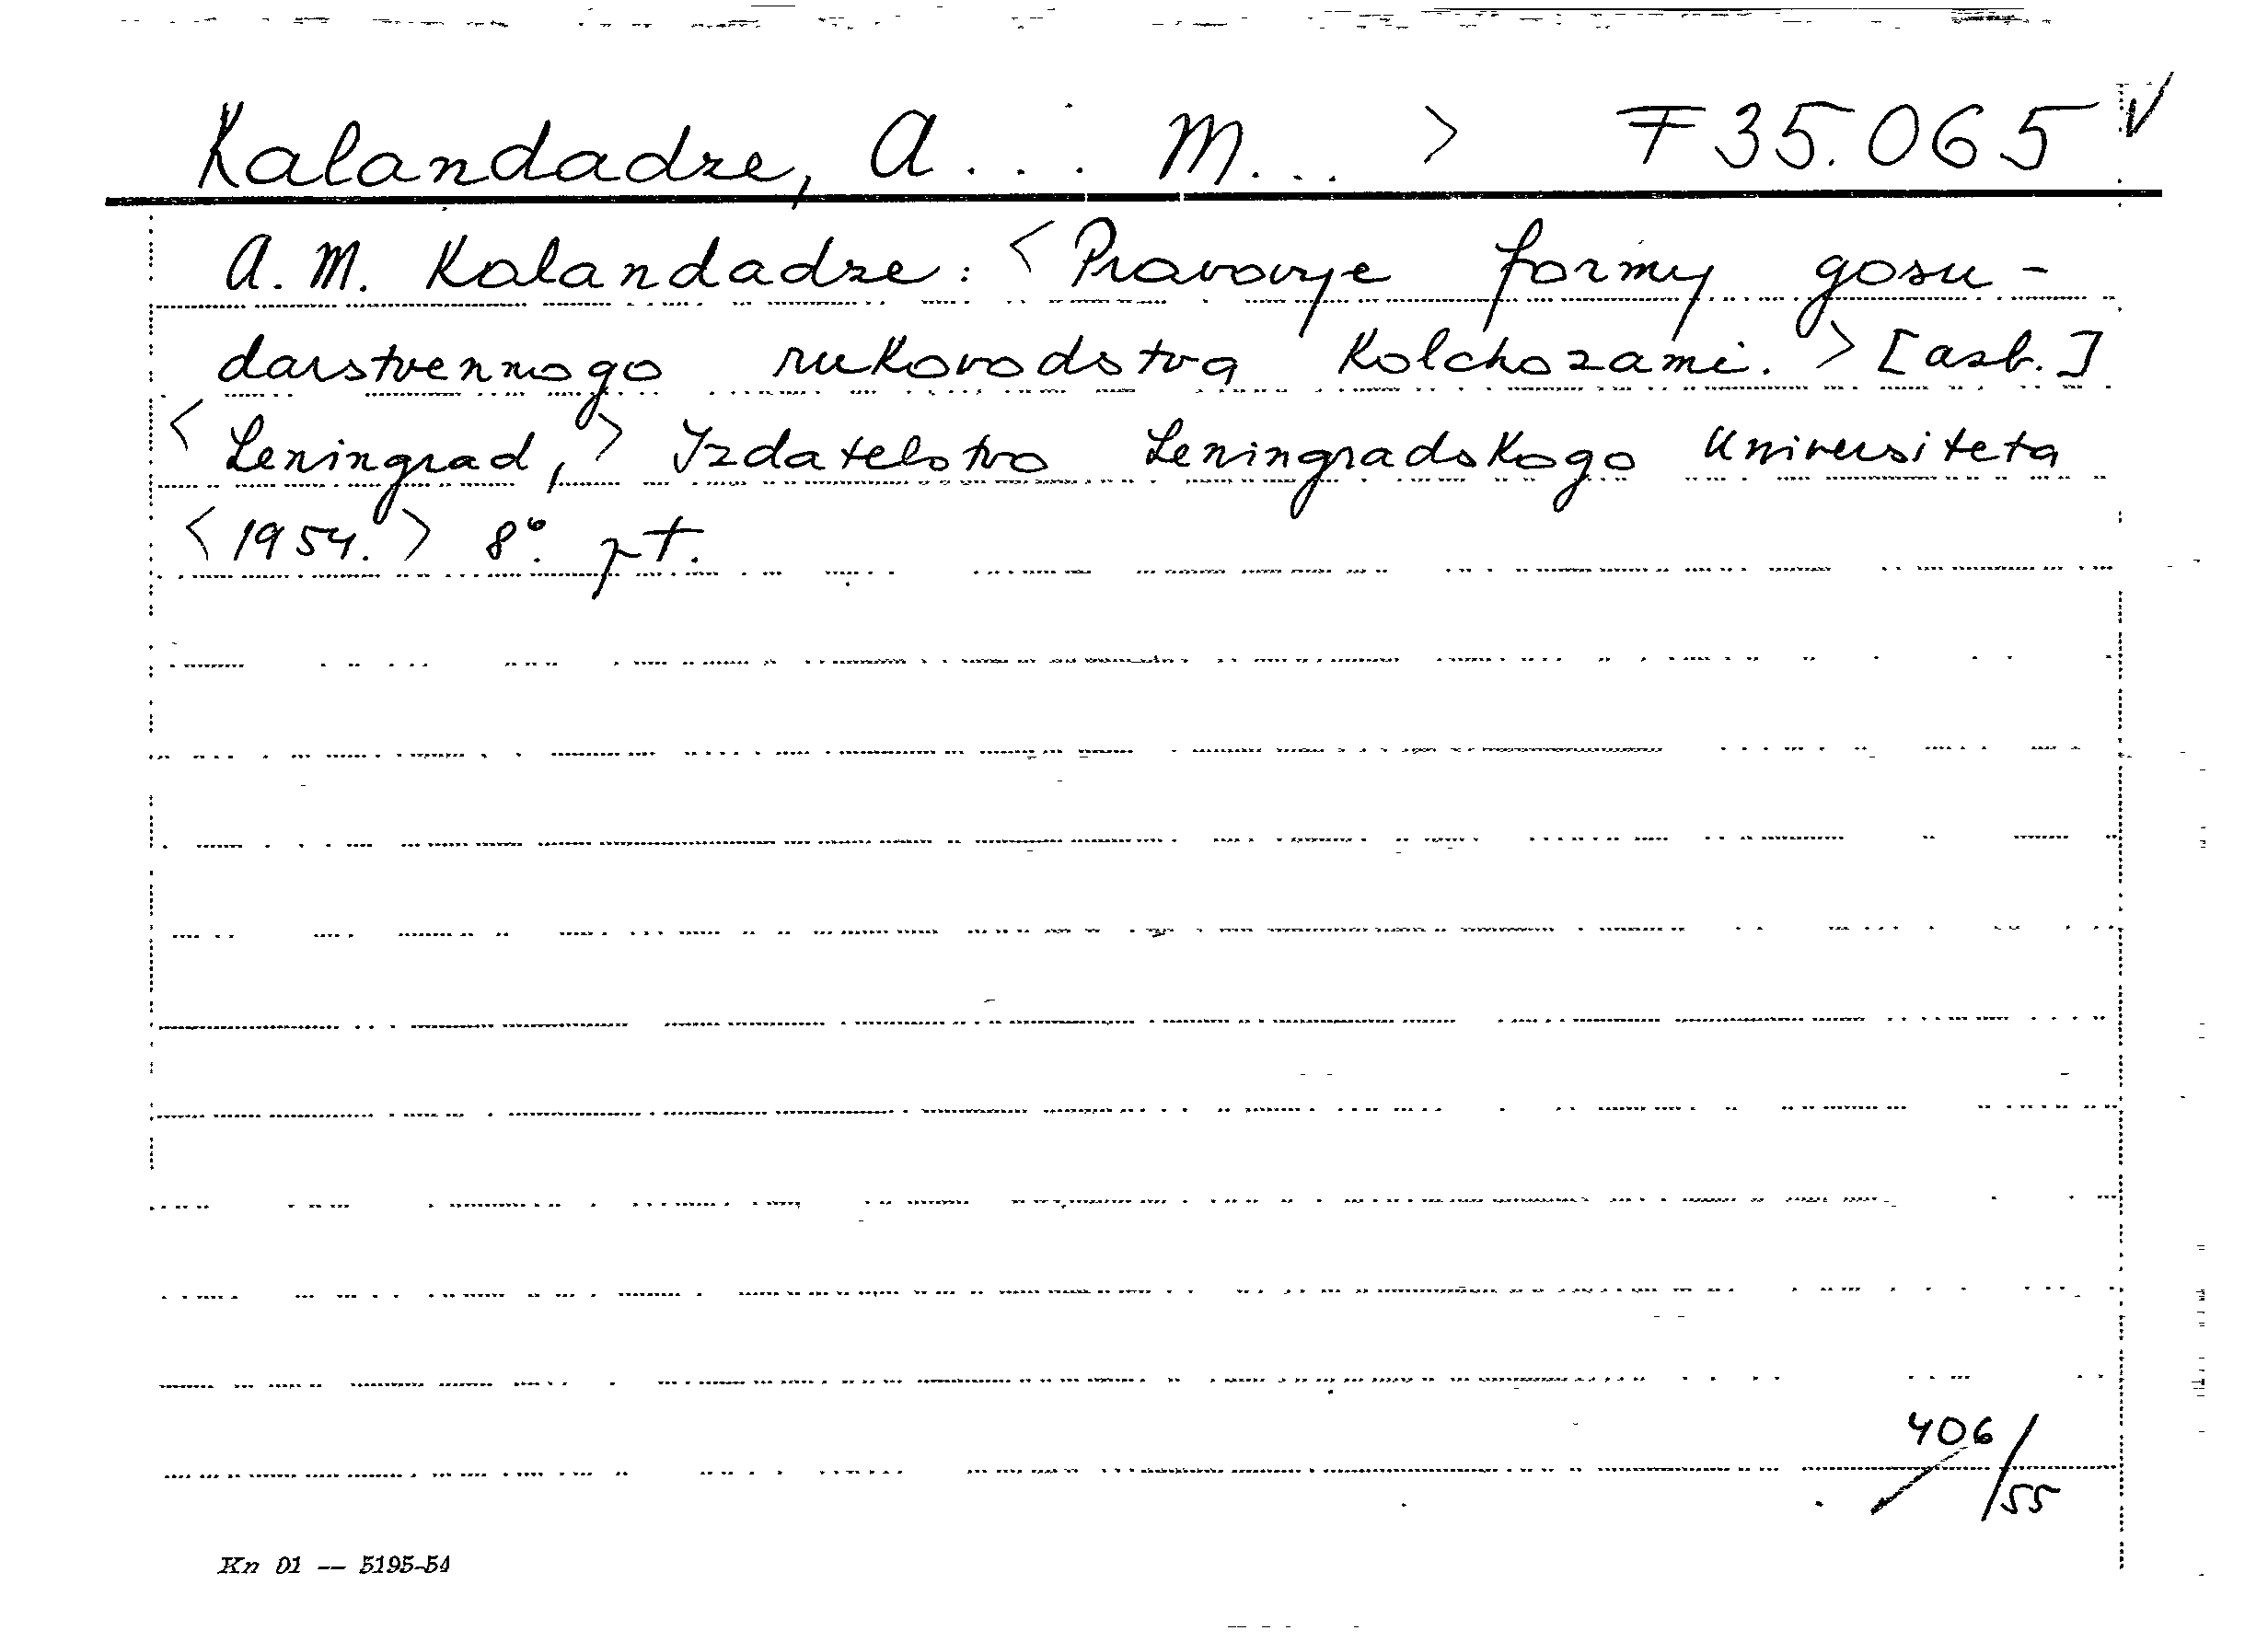 Kalandadze, A... M... > F 35.065 √
A. M. Kalandadze: <Pravovye formy gosu-
darstvennogo rukovodstva kolchozami.> [azb.]
<Leningrad,> Izdatelstvo Leningradskogo Universiteta
<1954.> 8°. pt.
406/55
Kn 01 — 5195-54